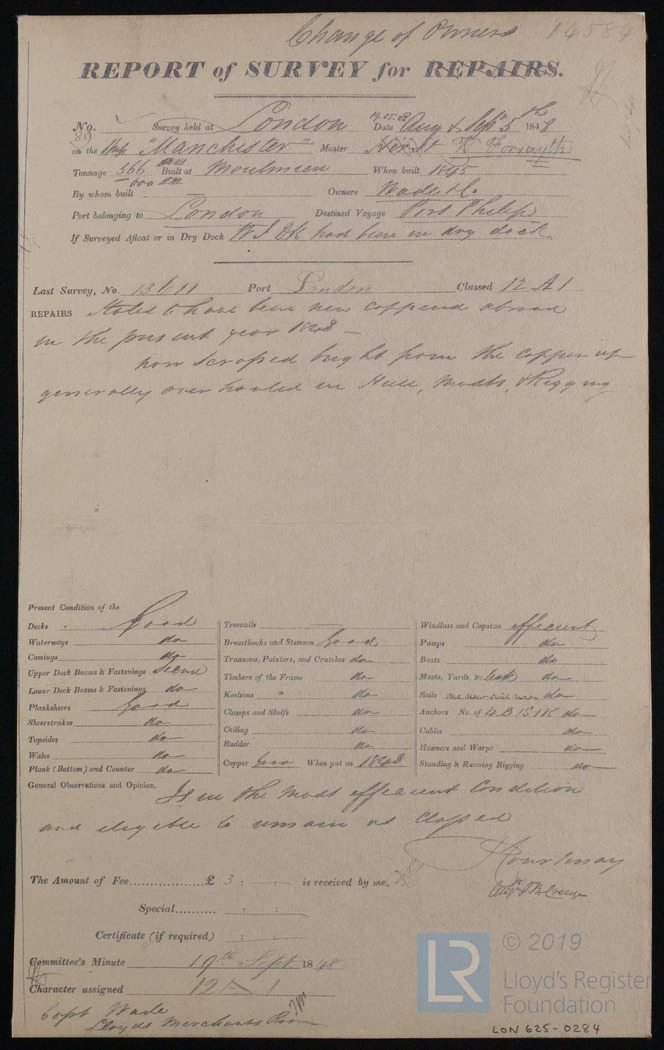 Change of Owners
REPORT of SURVEY for REPAIRS.
No. Survey held at London Date Aug & Sept 5th 1848
on the Ship "Manchester" Master H Forsayth
Tonnage 566 Built at Moulmein When built 1845
600
By whom built — Owners Wade & Co.
Port belonging to London Destined Voyage Port Philip
If Surveyed Afloat or in Dry Dock W I DK had been in dry dock
Last Survey, No. 13611 Port London Classed 12 A 1
REPAIRS Stated to have been new coppered abroad
in the present year 1848 —
now scraped bright from the copper up
generally over hauled in Hull, Masts, & Rigging
Present Condition of the
Decks Good
Waterways do
Comings do
Upper Deck Beams & Fastenings Second
Lower Deck Beams & Fastenings do
Planksheers Good
Sheerstrakes do
Topsides do
Wales do
Plank (Bottom) and Counter do
Treenails —
Breasthooks and Stemson Good
Transoms, Pointers, and Crutches do
Timbers of the Frame do
Keelsons " do
Clamps and Shelfs do
Ceiling do
Rudder do
Copper Good When put on 1848
Windlass and Capstan efficient
Pumps do
Boats do
Masts, Yards, &c. teak do
Sails one new suit do
Anchors No. of 4 B 1 S 1 K do
Cables do
Hawsers and Warps do
Standing & Running Rigging do
General Observations and Opinion, Is in the most efficient Condition
and eligible to remain as classed
Courtenay
The Amount of Fee............... £ 3 : : is received by me,
Special.......... : :
Certificate (if required) : :
Committee's Minute 19th Sept 1848
Character assigned 12 A 1
Capt Wade
Lloyds Merchants Room
LR © 2019
Lloyd's Register
Foundation
LON 625-0284